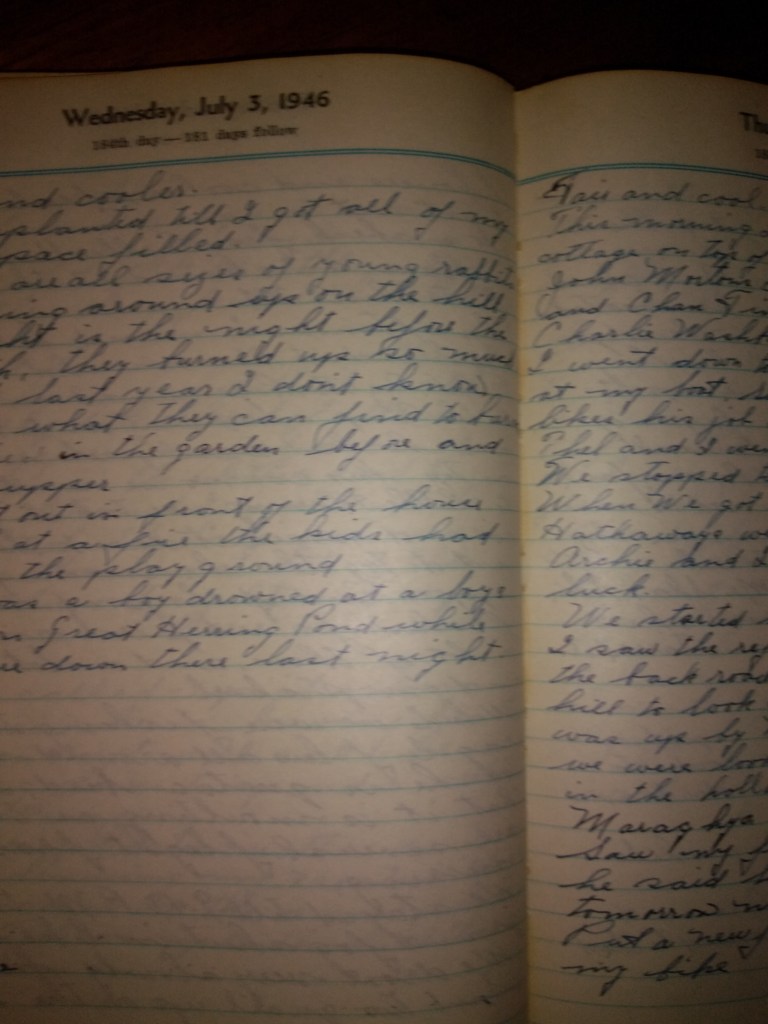 Wednesday, July 3, 1946
184th day — 181 days follow
nd cooler.
planted till I got all of my
pace filled.
are all sizes of young rabbits
ing around up on the hill
ht is the night before the
h. they turned up so much
last year I dont know
what they can find to burn
in the garden before and
upper
t out in front of the house
at a fire the kids had
the play ground
as a boy drowned at a boys
n Great Herring Pond while
re down there last night
Thu
Fair and cool.
This morning
cottage on top of
John Morton
and Chan
Charlie Washb
I went down to
at my boat
likes his job
Phil and I wen
We stopped
When We got
Hathaways we
Archie and I
luck.
We started
I saw the re
the back road
hill to look
was up by
we were loo
in the holl
Saw my f
he said
tomorrow
Put a new
my bike